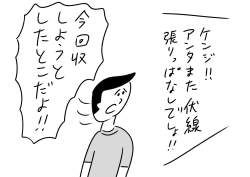 ケンジ!!
アンタまた伏線
張りっぱなしでしょ!!
今回収
しようと
したとこだよ!!